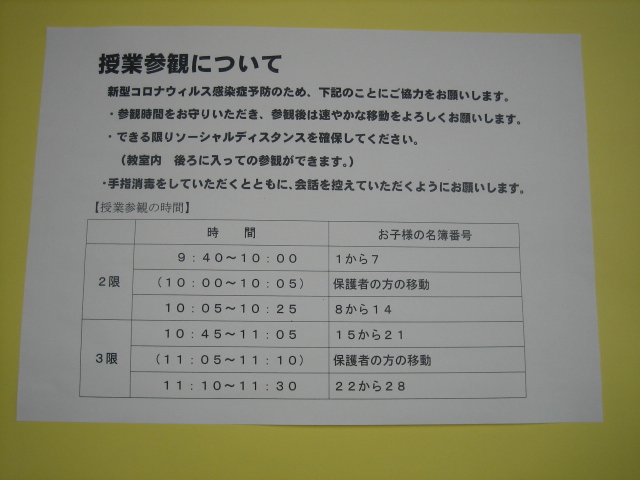 授業参観について
新型コロナウィルス感染症予防のため、下記のことにご協力をお願いします。
・参観時間をお守りいただき、参観後は速やかな移動をよろしくお願いします。
・できる限りソーシャルディスタンスを確保してください。
（教室内　後ろに入っての参観ができます。）
・手指消毒をしていただくとともに、会話を控えていただくようにお願いします。
【授業参観の時間】
時　間　お子様の名簿番号
２限　９：４０～１０：００　１から７
（１０：００～１０：０５）　保護者の方の移動
１０：０５～１０：２５　８から１４
３限　１０：４５～１１：０５　１５から２１
（１１：０５～１１：１０）　保護者の方の移動
１１：１０～１１：３０　２２から２８